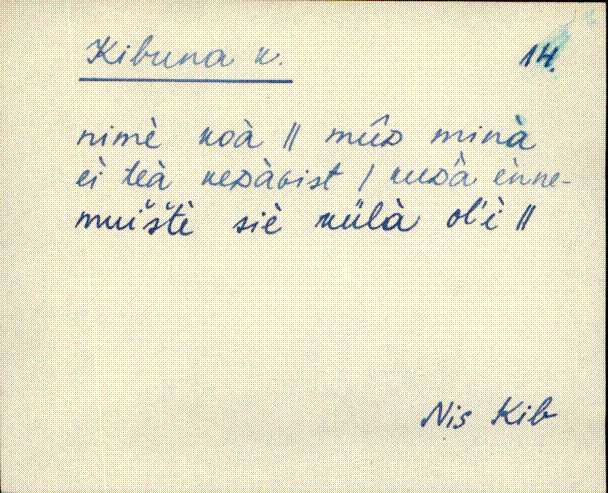 Kibuna k.
14.
nimè koà || mûᴅ minà
eì teà keᴅàɢist / kuᴅà ènne-
muištè siè külà ol'è ||
Nis Kib